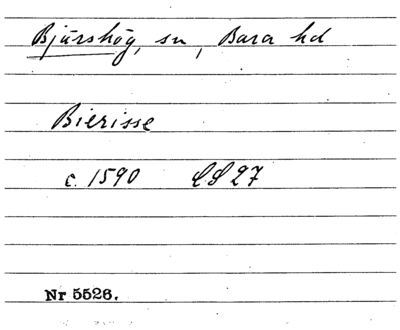 Bjärshög, sn, Bara hd
Bierisse
c. 1590 LS 27
Nr 5526.